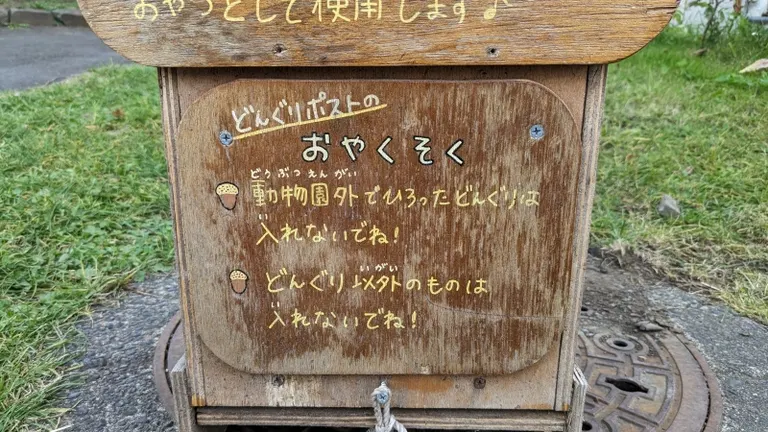 おやつとして使用します♪
どんぐりポストの
おやくそく
どうぶつえんがい
動物園外でひろったどんぐりは
い
入れないでね!
いがい
どんぐり以外のものは
入れないでね!